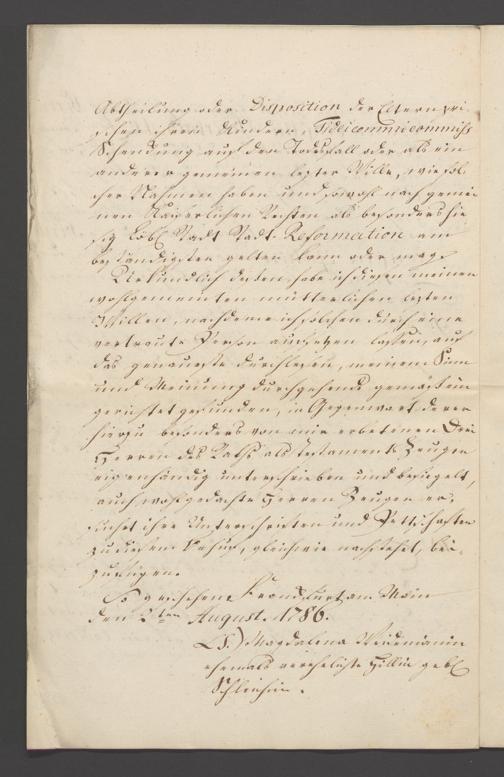 Abtheilung oder Disposition der Eltern zwi
schen ihren Kindern, Fideicommicommiss
Schenckung auf den Todesfall oder als ein
anderer gemeiner lezter Wille, wie sol
cher Nahmen haben und sowohl nach gemei
nen Kaiserlichen Rechten als besonders hie
sig Löbl Stadt Stadt-Reformation am
beständigsten gelten kann oder mag.
Uhrkundlich dessen, habe ich diesen meinen
wohlgemeinten mütterlichen lezten
Willen, nachdeme ich solchen durch eine
vertraute Person aufsezen lassen, auf
das genaueste durchlesen, meinem Sinn
und Meinung durchgehends gemäs ein
gerichtet gefunden, in Gegenwart derer
hierzu besonders von mir erbetenen Drei
Herren des Raths als Testaments Zeugen
eigenhändig unterschrieben und besiegelt,
auch wohlgedachte Herren Zeugen er
sucht ihre Unterschriften und Pettschaften
zu diesem Behuf, gleichwie nachstehet, bei
zufügen.
So geschehen Franckfurt am Main
den 2ten August. 1786.
(L.S.) Magdalena Weidemännin
ehemals verehelichte Hillin gebl